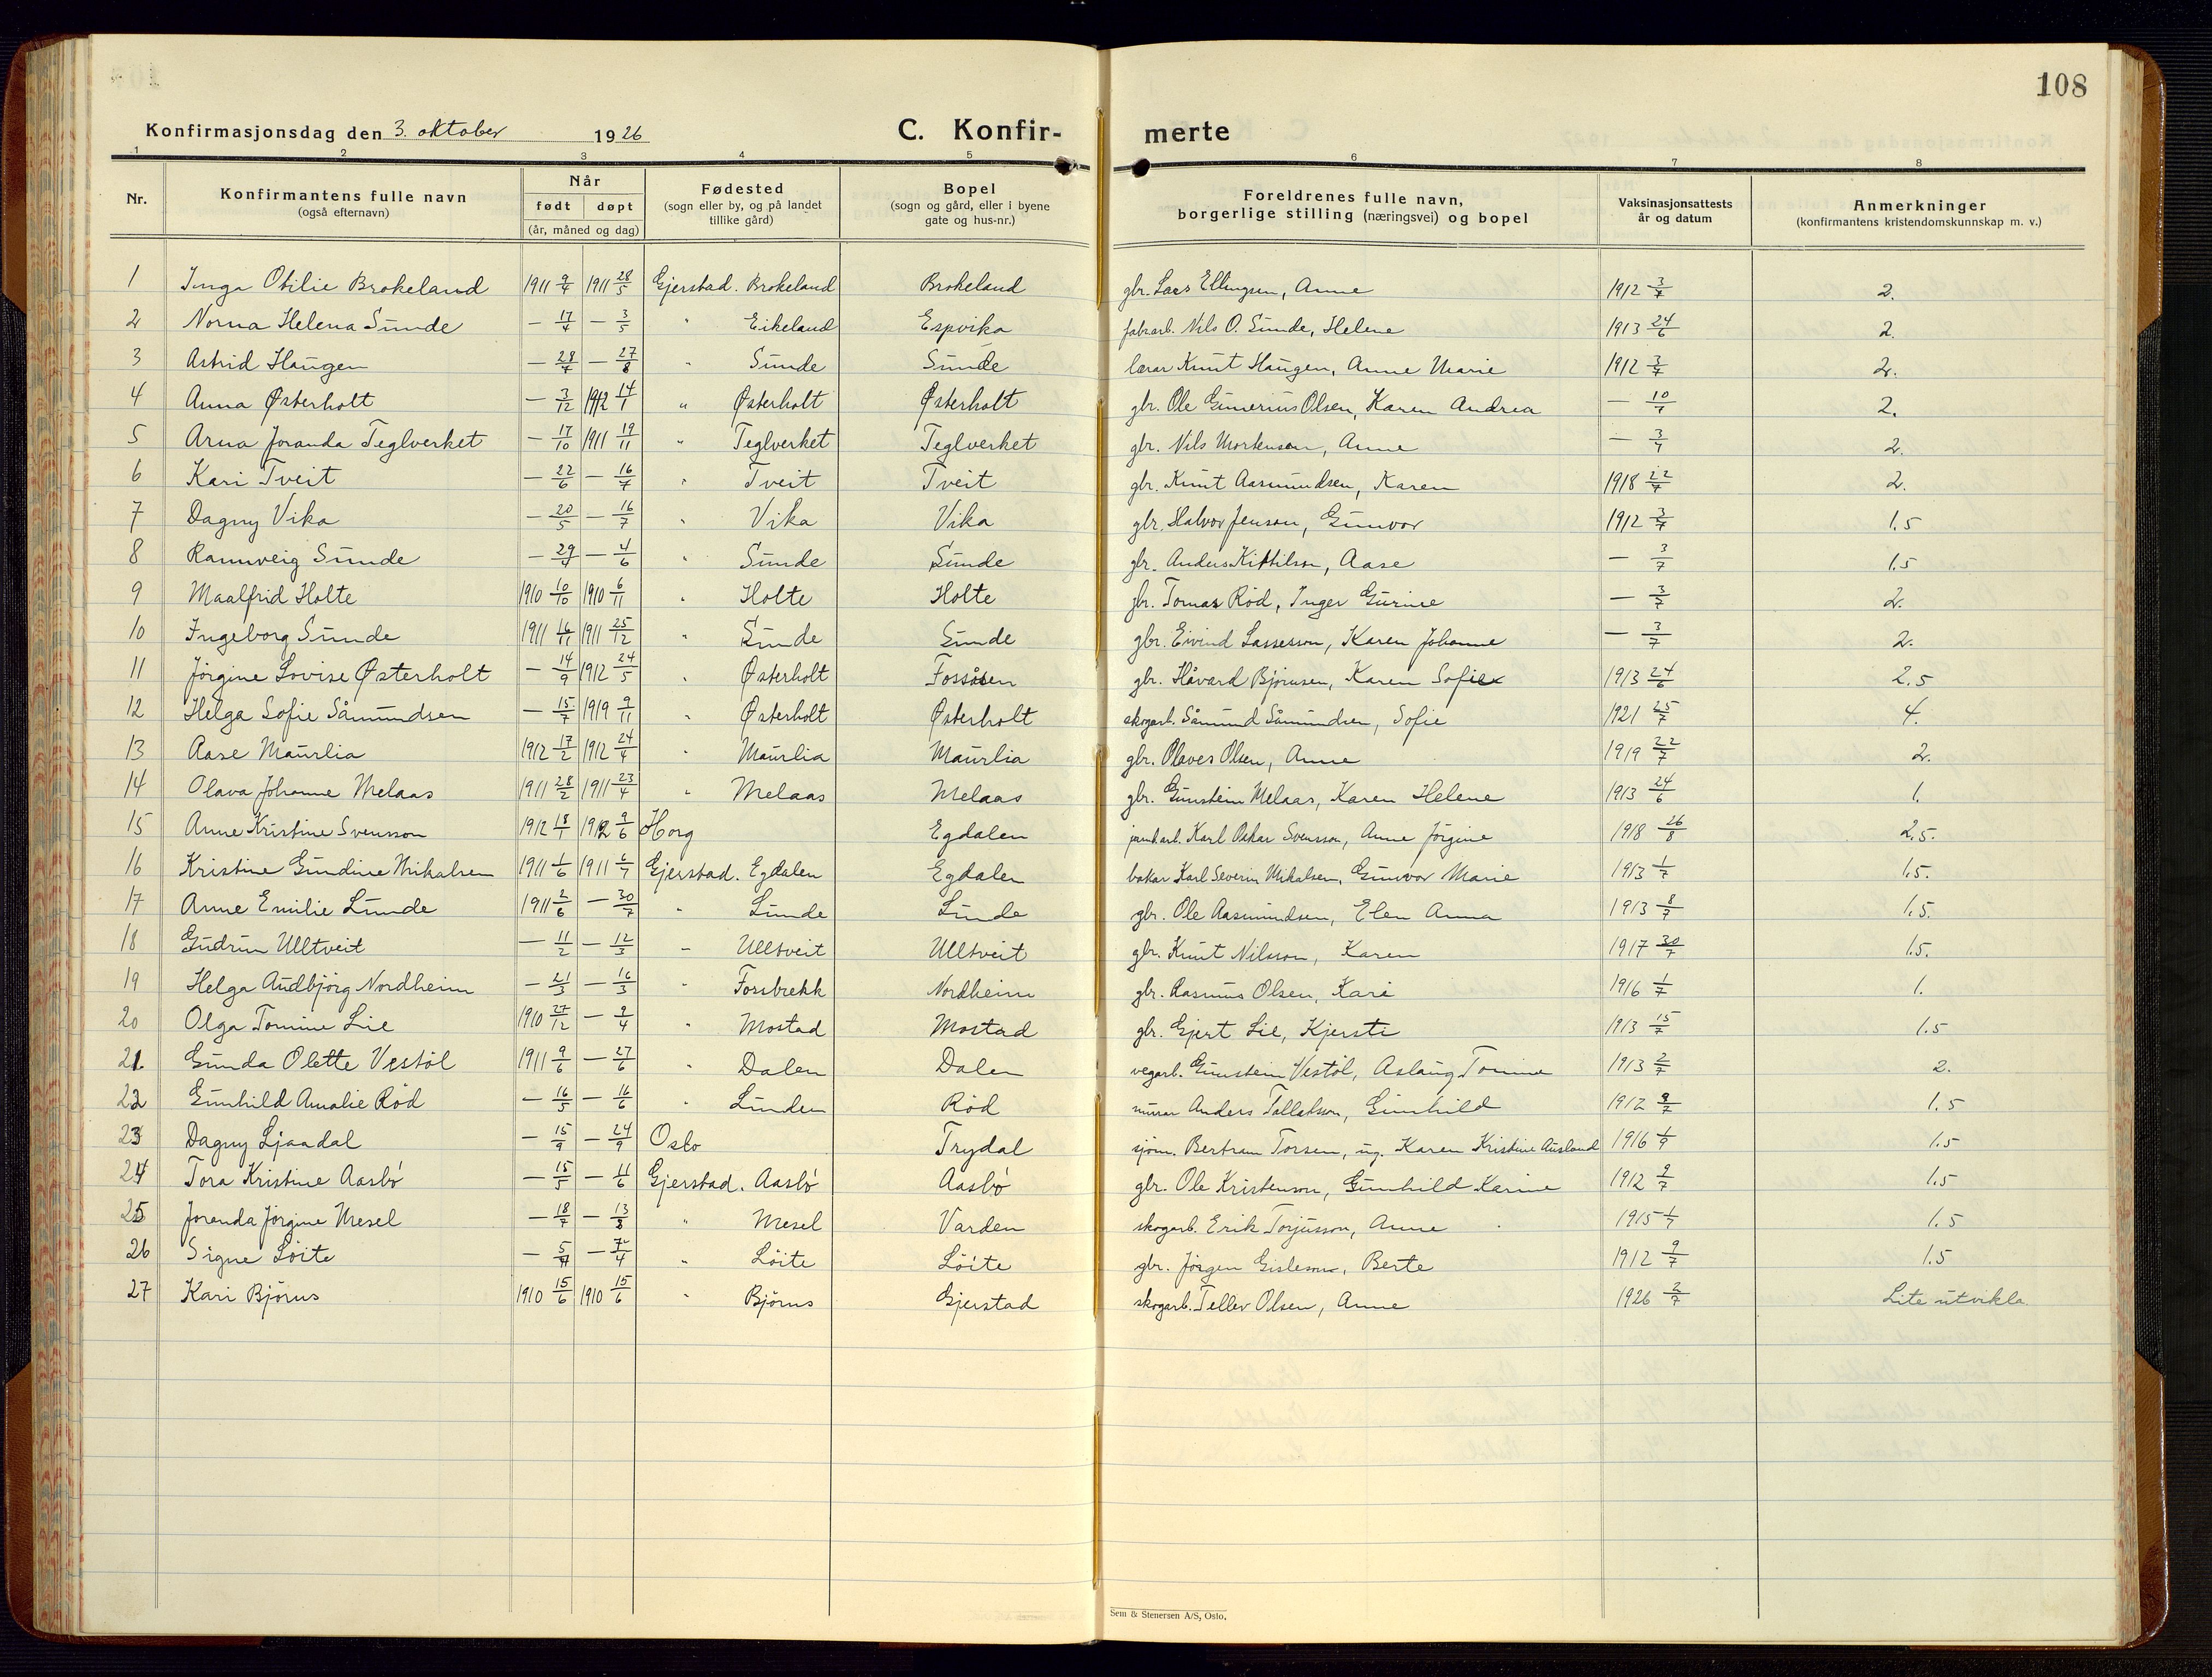 108
Konfirmasjonsdag den 3. oktober 1926 C. Konfir- merte
1 2 3 4 5 6 7 8
Nr. Konfirmantens fulle navn (også efternavn) Når født døpt (år, måned og dag) Fødested (sogn eller by, og på landet tillike gård) Bopel (sogn og gård, eller i byene gate og hus-nr.) Foreldrenes fulle navn, borgerlige stilling (næringsvei) og bopel Vaksinasjonsattests år og datum Anmerkninger (konfirmantens kristendomskunnskap m. v.)
1 Inga Otilie Brokeland 1911 9/4 1911 28/5 Gjerstad. Brokeland Brokeland gbr. Lars Ellingsen, Anne 1912 3/7 2.
2 Norna Helena Sunde — 17/4 — 3/5 " Eikeland Espvika fabrarb. Nils O. Sunde, Helene 1913 24/6 2.
3 Astrid Haugen — 28/7 — 27/8 " Sunde Sunde lærar Knut Haugen, Anne Marie 1912 3/7 2.
4 Anna Østerholt — 3/12 1912 14/1 " Østerholt Østerholt gbr. Ole Gunerius Olsen, Karen Andrea — 10/7 2.
5 Arna Joranda Teglverket — 17/10 1911 19/11 " Teglverket Teglverket gbr. Nils Mortensen, Anne — 3/7 2.
6 Kari Tveit — 22/6 — 16/7 " Tveit Tveit gbr. Knut Aasmundsen, Karen 1918 22/7 2.
7 Dagny Vika — 20/5 — 16/7 " Vika Vika gbr. Halvor Jenson, Gunvor 1912 3/7 1.5
8 Rannveig Sunde — 29/4 — 4/6 " Sunde Sunde gbr. Anders Kittilson, Aase — 3/7 1.5
9 Maalfrid Holte 1910 10/10 1910 6/11 " Holte Holte gbr. Tomas Rød, Inger Gurine — 3/7 2.
10 Ingeborg Sunde 1911 16/11 1911 25/12 " Sunde Sunde gbr. Eivind Lassesson, Karen Johanne — 3/7 2.
11 Jörgine Lovise Østerholt — 14/9 1912 24/5 " Østerholt Fossåsen gbr. Håvard Björnsen, Karen Sofie 1913 24/6 2.5
12 Helga Sofie Såmundsen — 15/7 1919 9/11 " Østerholt Østerholt skogarb. Såmund Såmundsen, Sofie 1921 25/7 4.
13 Aase Maurlia 1912 17/2 1912 24/4 " Maurlia Maurlia gbr. Olaves Olsen, Anne 1919 22/7 2.
14 Olava Johanne Melaas 1911 28/2 1911 23/4 " Melaas Melaas gbr. Gunstein Melaas, Karen Helene 1913 24/6 1.
15 Anne Kristine Svensson 1912 18/1 1912 9/6 Horg Egdalen jarnb.arb. Karl Oskar Svensson, Anne Jörgine 1918 26/8 2.5.
16 Kristine Gundine Mikalsen 1911 1/6 1911 6/7 Gjerstad. Egdalen Egdalen bakar Karl Severin Mikalsen, Gunvor Marie 1913 1/7 1.5.
17 Anne Emilie Lunde 1911 2/6 — 30/7 " Lunde Lunde gbr. Ole Aasmundsen, Elen Anna 1913 8/7 1.5.
18 Gudrun Ulltveit — 11/2 — 12/3 " Ulltveit Ulltveit gbr. Knut Nilsson, Karen 1917 30/7 1.5.
19 Helga Audbjörg Nordheim — 21/3 — 16/3 " Forsbrekk Nordheim gbr. Rasmus Olsen, Kari 1916 1/7 1.
20 Olga Tomine Lie 1910 27/12 — 9/4 " Mostad Mostad gbr. Gjert Lie, Kjersti 1913 15/7 1.5
21. Gunda Olette Vestöl 1911 9/6 — 27/6 " Dalen Dalen vegarb. Gunstein Vestöl, Aslaug Tomine 1913 2/7 2.
22 Gunhild Amalie Röd — 16/5 — 16/6 " Lunden Röd murar Anders Tallakson, Gunhild 1912 9/7 1.5
23 Dagny Ljaadal — 15/9 — 24/9 Oslo Trydal sjöm. Bertram Torsen, ug. Karen Kristine Ausland 1916 1/9 1.5
24 Tora Kristine Aasbö — 15/5 — 11/6 Gjerstad. Aasbö Aasbö gbr. Ole Kristenson, Gunhild Karine 1912 9/7 1.5
25 Joranda Jörgine Mesel — 18/7 — 13/8 " Mesel Varden skogarb. Erik Torjusson, Anne 1915 1/7 1.5
26 Signe Löite — " Löite Löite gbr. Jörgen Gisleson, Berte 1912 9/7 1.5
27 Kari Björus 1910 15/6 1910 15/6 " Björus Gjerstad skogarb. Tellev Olsen, Anne 1926 2/7 Lite utvikla
Sem & Stenersen A/S, Oslo.